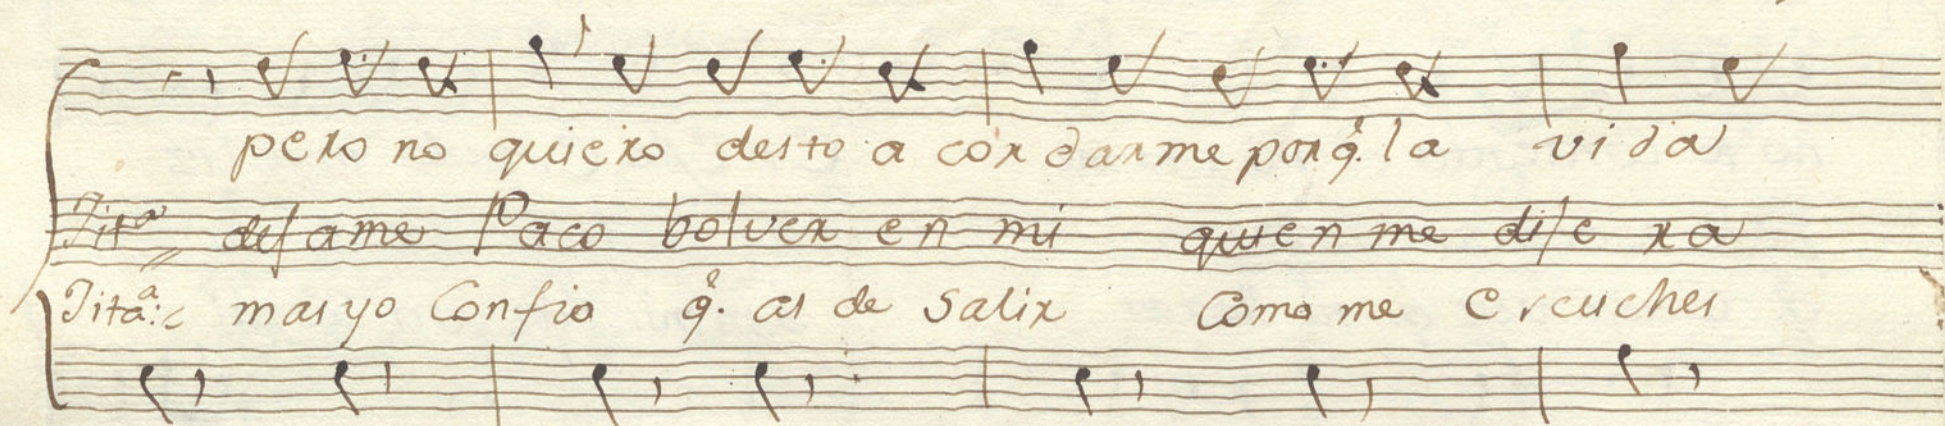 pero no quiero desto a cordarme porq.e la vida
Jit.a desame Paco bolver en mi quien me dise ra
Jita.: mas yo Confio q.e as de Salir Como me Escuches